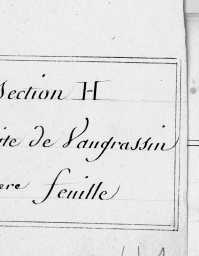 Section H
ite de Vaugrassin
ere feuille